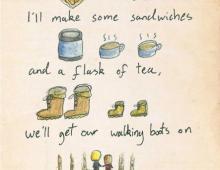 I'll make some sandwiches
and a flask of tea,
we'll get our walking boots on